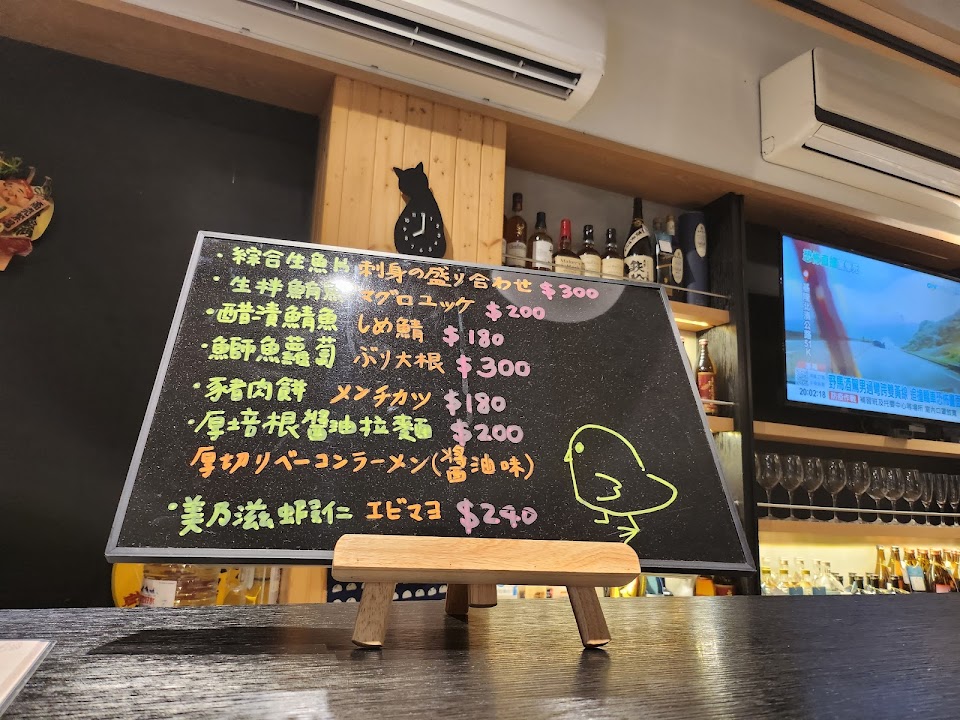 ・綜合生魚片 刺身の盛り合わせ $300
・生拌鮪魚 マグロユッケ $200
・醋漬鯖魚 しめ鯖 $180
・鰤魚蘿蔔 ぶり大根 $300
・豬肉餅 メンチカツ $180
・厚培根醬油拉麵 $200
厚切りベーコンラーメン(醤油味)
・美乃滋蝦仁 エビマヨ $240
20:02:18